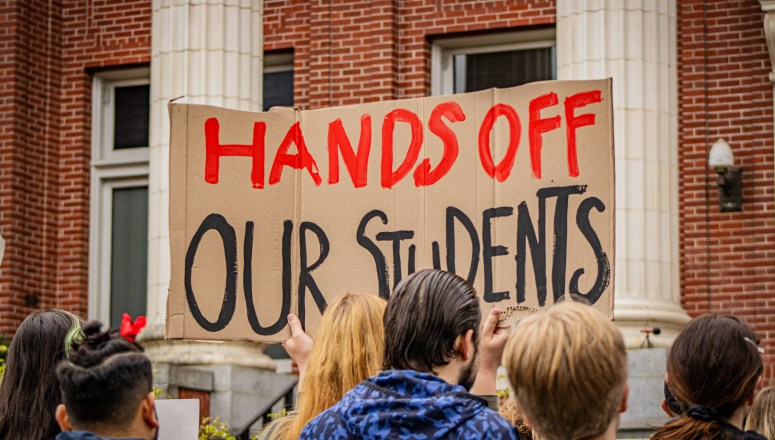 HANDS OFF
OUR STUDENTS